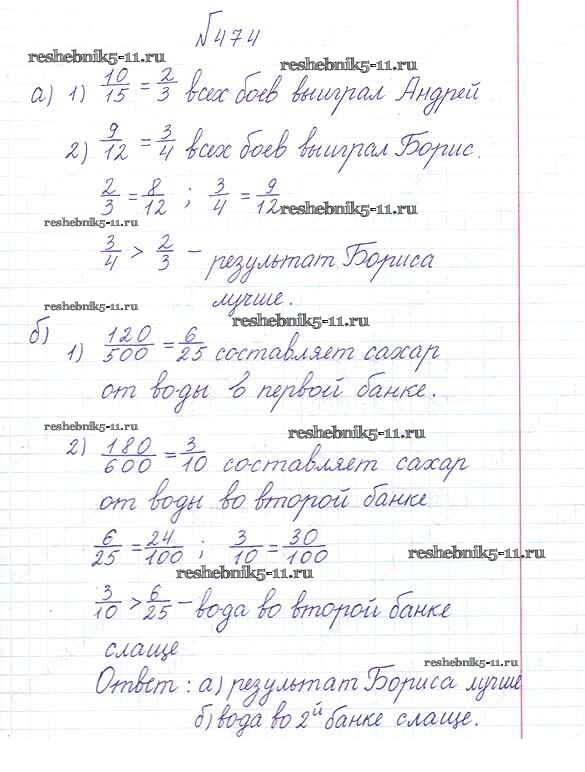 №474
reshebnik5-11.ru reshebnik5-11.ru
а) 1) 10/15 = 2/3 всех боев выиграл Андрей
2) 9/12 = 3/4 всех боев выиграл Борис.
2/3 = 8/12 ; 3/4 = 9/12 reshebnik5-11.ru
reshebnik5-11.ru
3/4 > 2/3 – результат Бориса
лучше.
reshebnik5-11.ru
reshebnik5-11.ru
б) 1) 120/500 = 6/25 составляет сахар
от воды в первой банке.
reshebnik5-11.ru reshebnik5-11.ru
2) 180/600 = 3/10 составляет сахар
от воды во второй банке
6/25 = 24/100 ; 3/10 = 30/100
reshebnik5-11.ru
reshebnik5-11.ru
3/10 > 6/25 – вода во второй банке
слаще
reshebnik5-11.ru
Ответ : а) результат Бориса лучше
б) вода во 2й банке слаще.